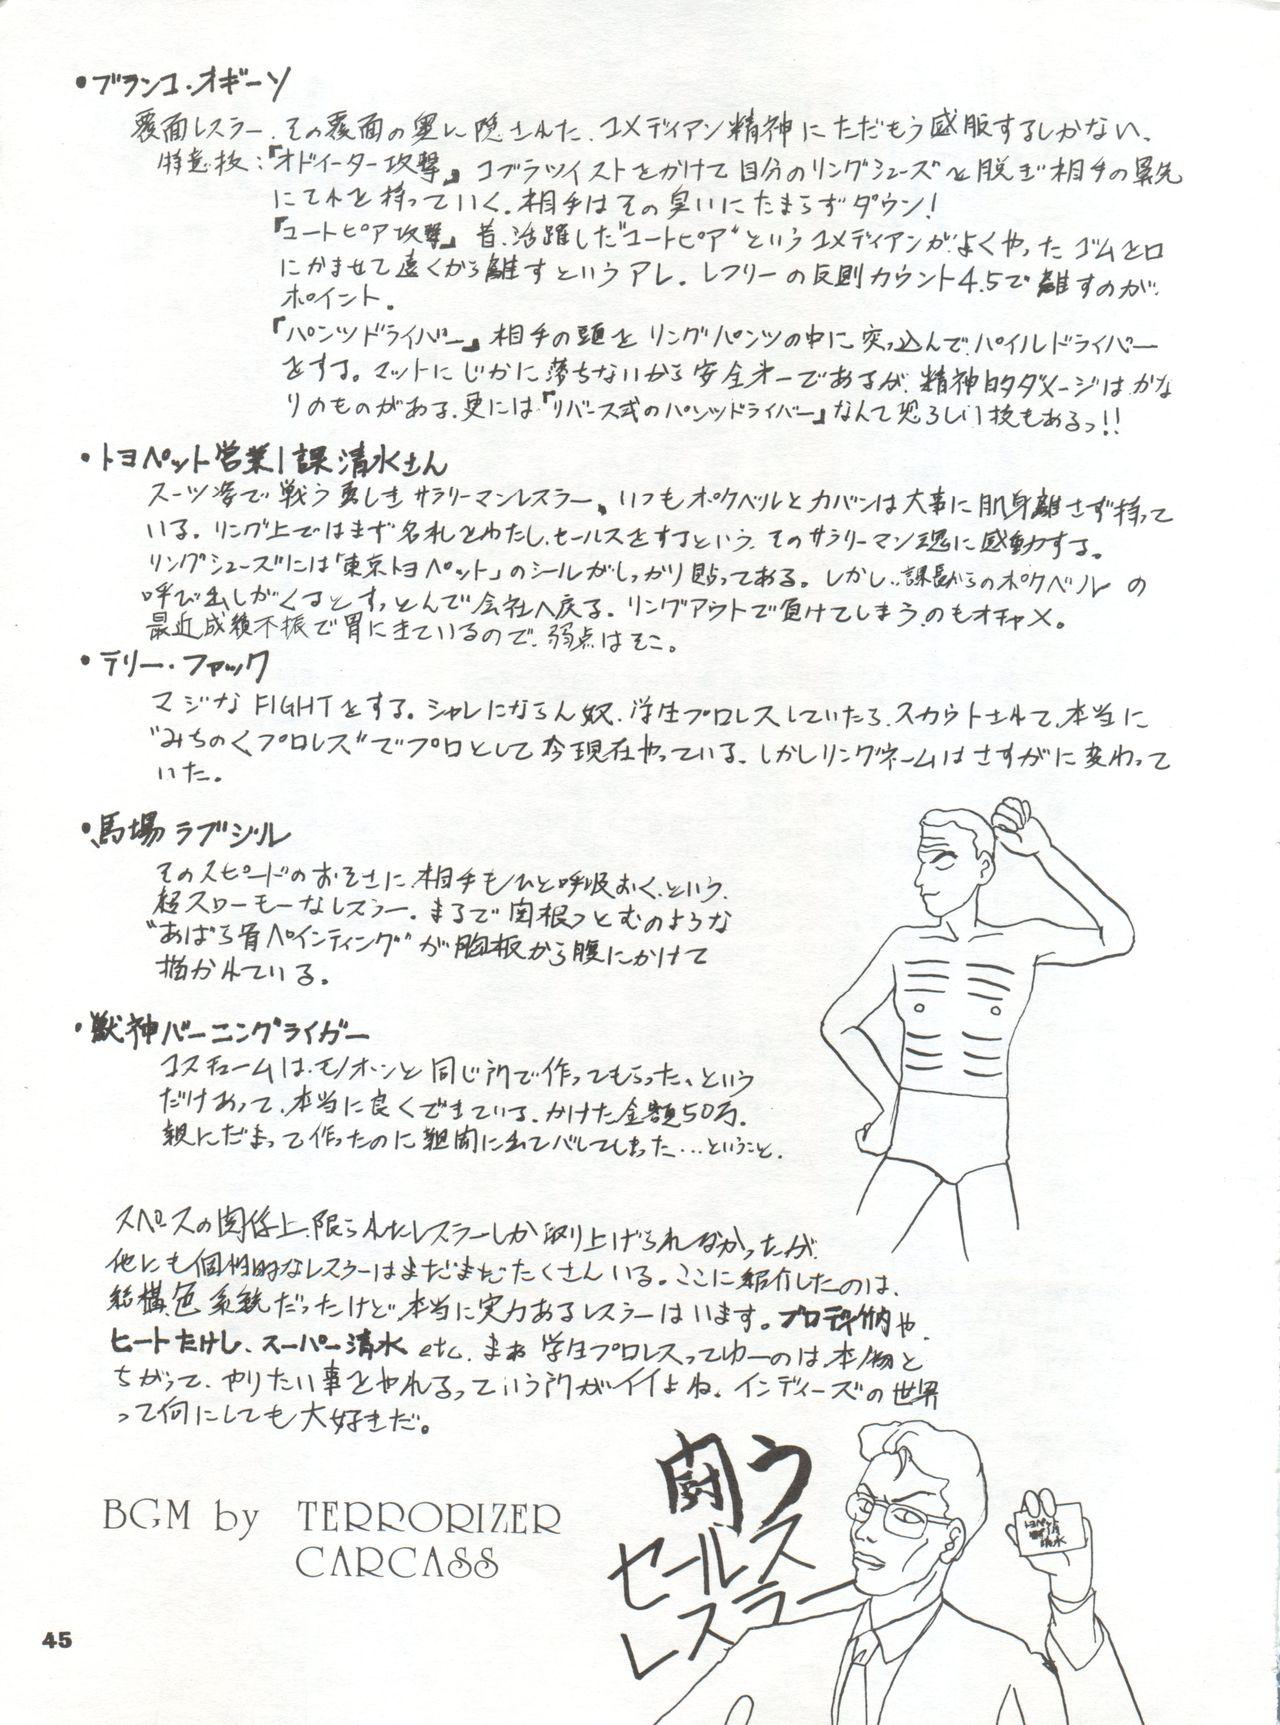 ・ブランコ・オギーソ
覆面レスラー、その覆面の奥に隠された、コメディアン精神にただもう感服するしかない、
特意技：『オドイーター攻撃』コブラツイストをかけて自分のリングシューズを脱ぎ相手の鼻先
にそれを持っていく。相手はその臭いにたまらずダウン！
『ユートピア攻撃』昔、活躍した"ユートピア"というコメディアンがよくやったゴムを口
にかませて遠くから離すというアレ、レフリーの反則カウント4.5で離すのが
ポイント。
『パンツドライバー』相手の頭をリングパンツの中に突っ込んでパイルドライバー
をする。マットにじかに落ちないから安全オーであるが、精神的ダメージはかな
りのものがある、更には『リバース式のパンツドライバー』なんて恐ろしい技もあるっ!!
・トヨペット営業1課清水さん
スーツ姿で戦う勇しきサラリーマンレスラー、いつもポケベルとカバンは大事に肌身離さず持って
いる。リング上ではまず名札をわたし、セールスをするという、そのサラリーマン魂に感動する。
リングシューズには「東京トヨペット」のシールがしっかり貼ってある。しかし、課長からのポケベルの
呼び出しがくるとすっとんで会社へ戻る。リングアウトで負けてしまうのもオチャメ。
最近成績不振で胃にきているので、弱点はそこ。
・テリー・ファック
マジなFIGHTをする。シャレにならん奴、学生プロレスしていたら、スカウトされて、本当に
"みちのくプロレス"でプロとして今現在やっている、しかしリングネームはさすがに変わって
いた。
・馬場ラブジル
そのスピードのおそさに、相手もひと呼吸おく、という、
超スローモーなレスラー。まるで関根つとむのような
"あばら骨ペインティング"が胸板から腹にかけて
描かれている。
・獣神バーニングライガー
コスチュームは、モノホンと同じ所で作ってもらった、という
だけあって、本当に良くできている、かけた金額50万。
親にだまって作ったのに新聞に出てバレてしまった…ということ。
スペースの関係上、限られたレスラーしか取り上げられなかったが
他にも個性的なレスラーはまだまだたくさんいる。ここに紹介したのは、
結構色系統だったけど、本当に実力あるレスラーはいます。ブロディ竹内や、
ヒートたけし、スーパー清水 etc. まあ学生プロレスってゆーのは、本物と
ちがって、やりたい事をやれるっていう所がイイよね。インディーズの世界
って何にしても大好きだ。
闘う
セールス
レスラー
トヨペット
清水
BGM by TERRORIZER
CARCASS
45